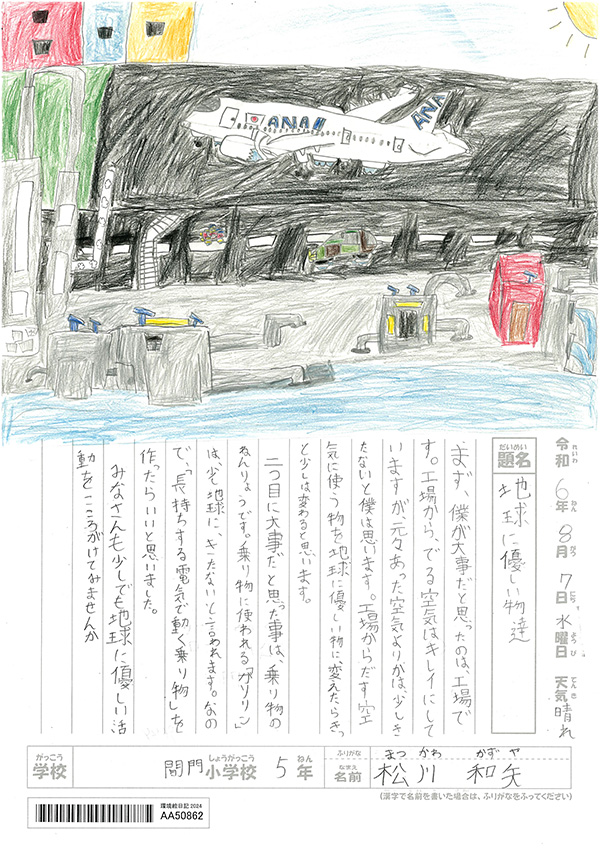 ANA
ANA
令和6年8月7日水曜日 天気晴れ
れいわ ねん がつ にち ようび てんき
だいめい
題名
地球に優しい物達
まず、僕が大事だと思ったのは、工場で
す。工場から、でる空気はキレイにして
いますが元々あった空気よりかは、少しき
たないと僕は思います。工場からだす空
気に使う物を地球に優しい物に、変えたらきっ
と少しは変わると思います。
二つ目に大事だと思った事は、乗り物の
ねんりょうです。乗り物に使われる「ガソリン」
は少し地球に、きたないと言われます。なの
で、「長持ちする電気で動く乗り物」を
作ったらいいと思いました。
みなさんも少しでも地球に優しい活
動をこころがけてみませんか
がっこう しょうがっこう ねん
学校 間門小学校 5年
ふりがな まつかわ かずや
なまえ
名前 松川 和矢
(漢字で名前を書いた場合は、ふりがなをふってください)
環境絵日記2024
AA50862